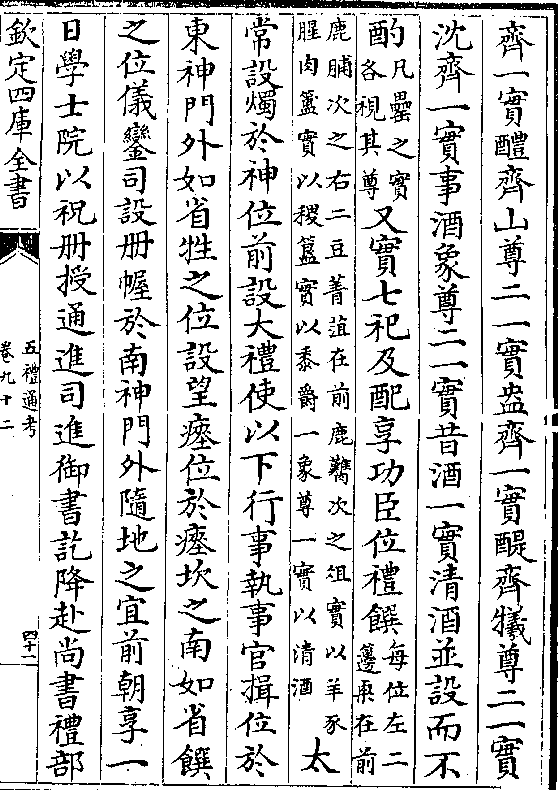 齊一實醴齊山尊二一實盎齊一實醍齊犧尊二一實
沈齊一實事酒象尊二一實昔酒一實清酒並設而不
酌凡罍之實各視其尊又實七祀及配享功臣位禮饌每位左二籩栗在前
鹿脯次之右二豆菁菹在前鹿臡次之俎實以羊豕腥肉簠實以稷簋實以黍爵一象尊一實以清酒太
常設燭於神位前設大禮使以下行事執事官揖位於
東神門外如省牲之位設望瘞位於瘞坎之南如省饌
之位儀鑾司設冊幄於南神門外隨地之宜前朝享一
日學士院以祝冊授通進司進御書訖降赴尚書禮部
欽定四庫全書
五禮通考
卷九十二
四十一